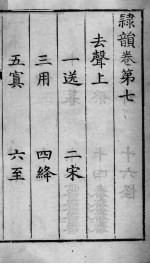 隸韻卷第七
去聲上
一送 二宋
三用 四絳
五寘 六至